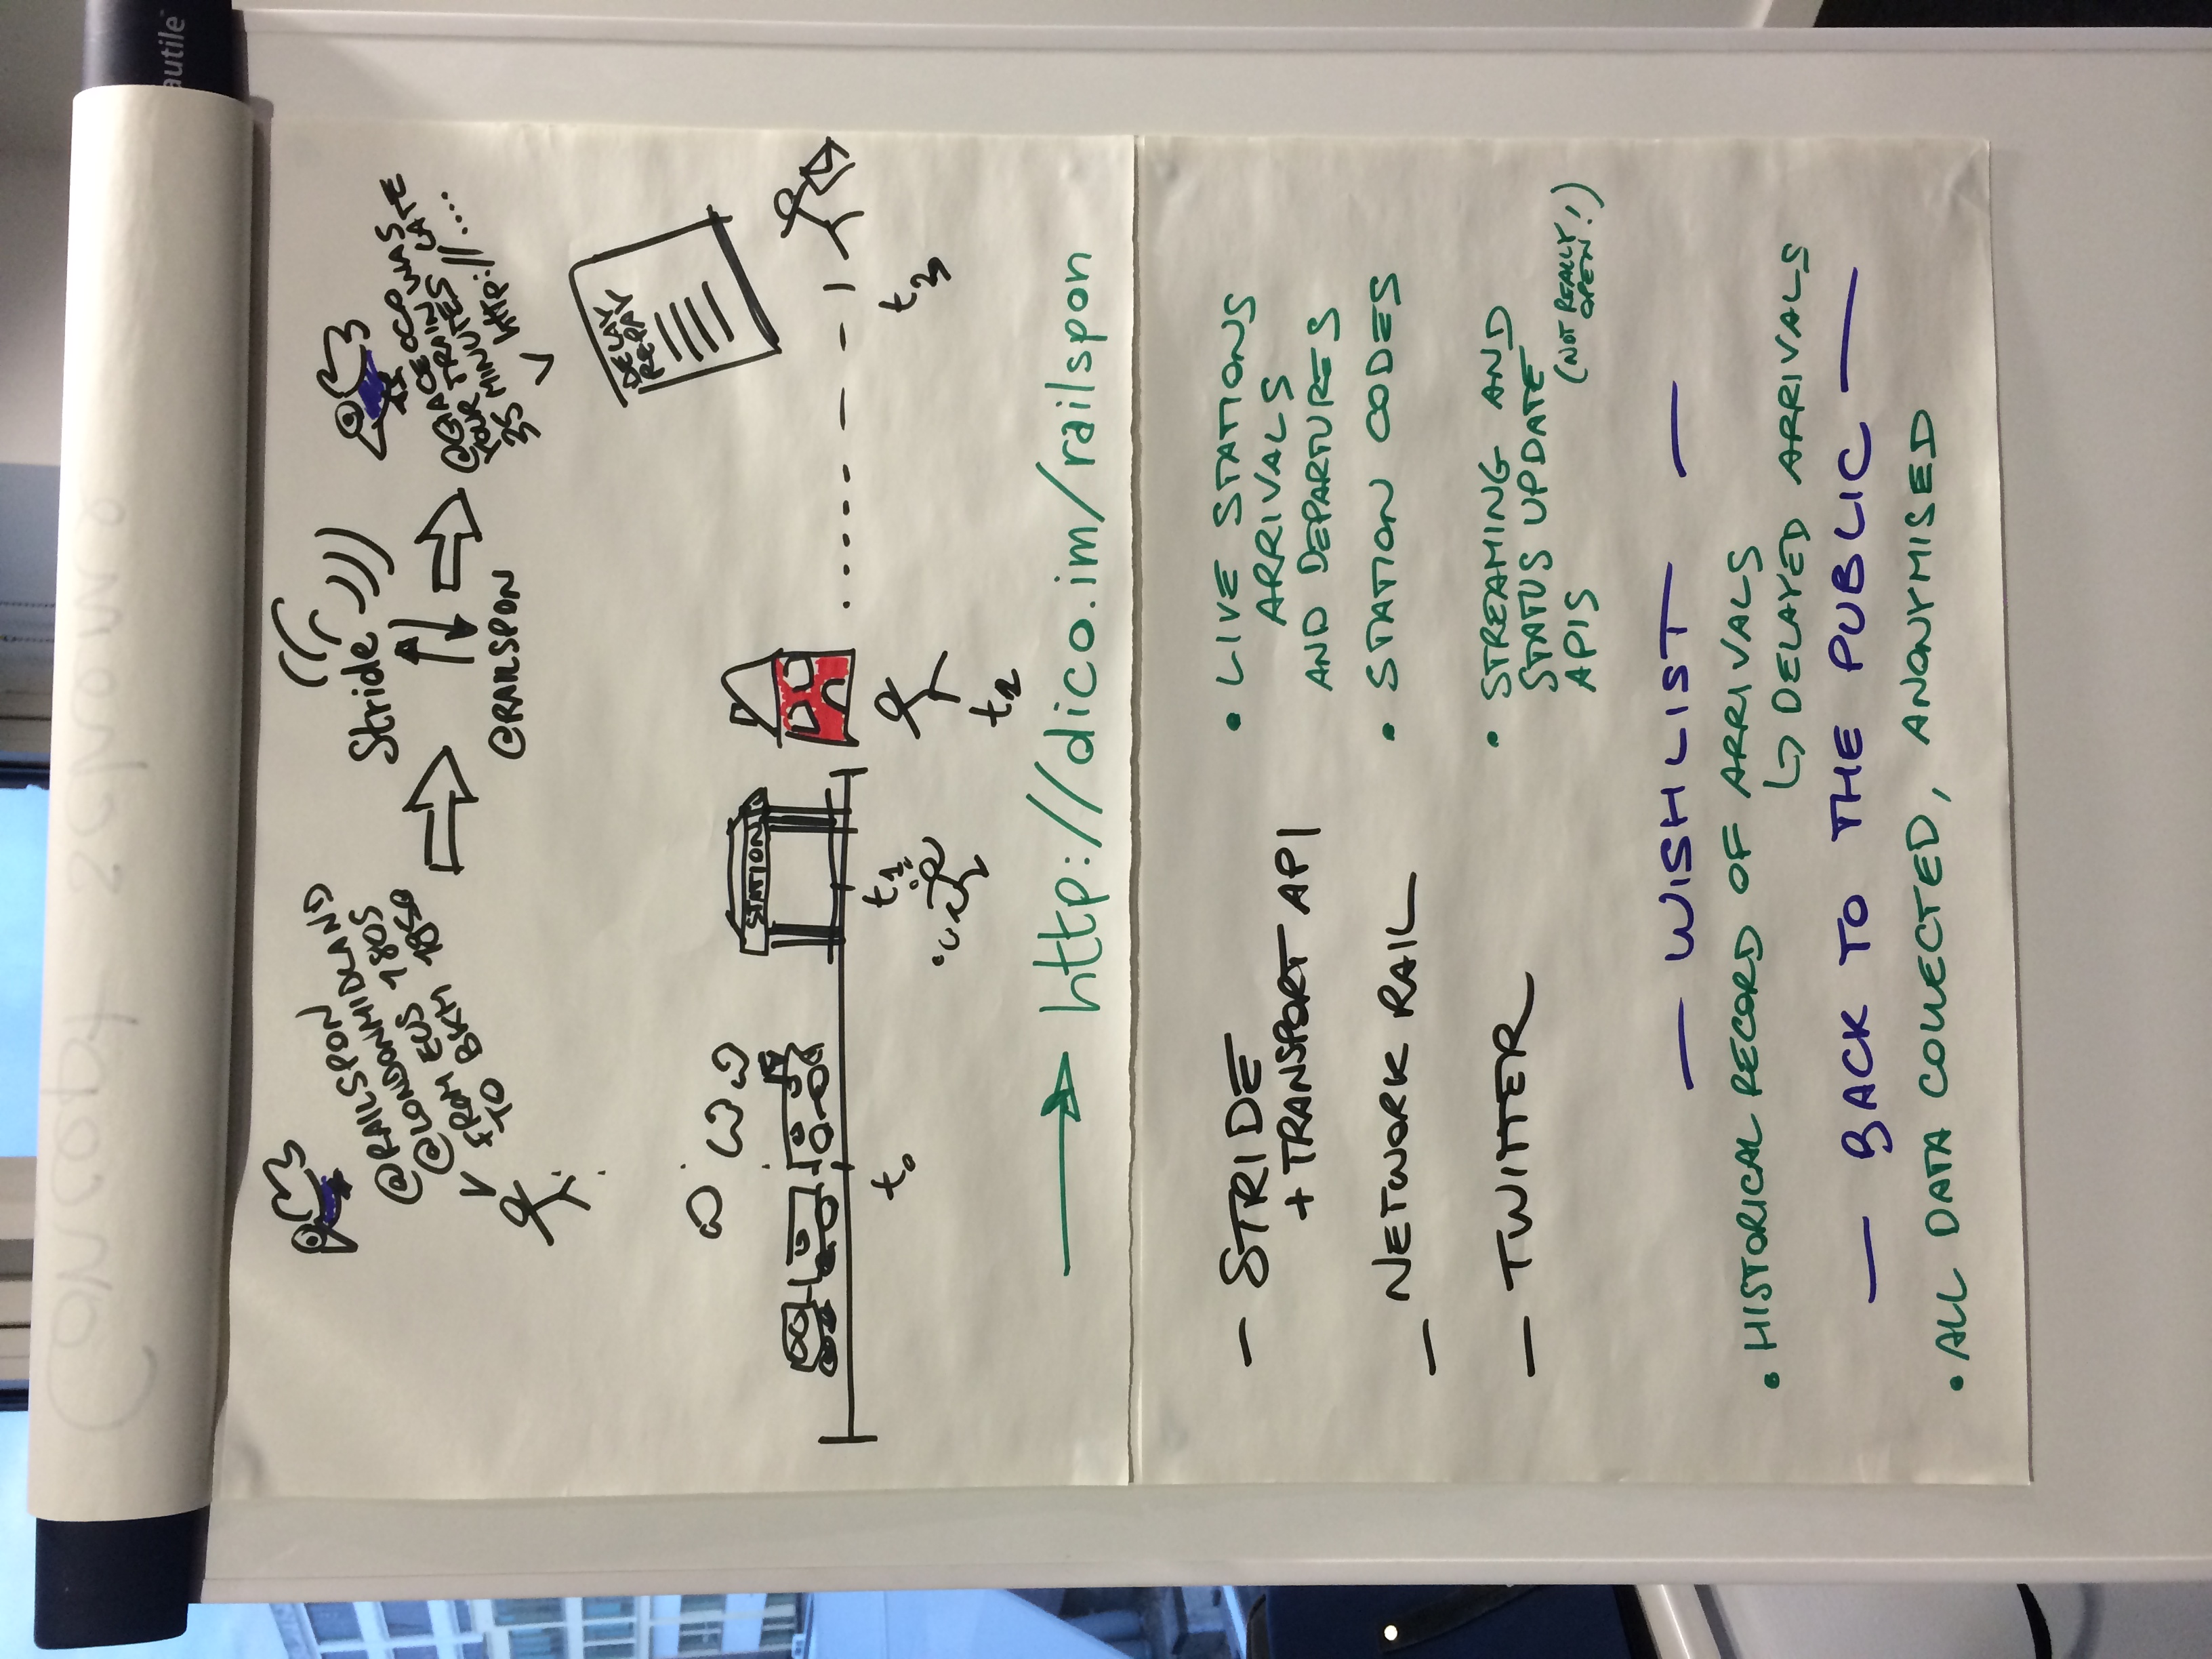 Concept scheme
autile
@RAILSPON
@LONDONMIDLAND
FROM EUS 1805
TO BKM 1850
Stride
@RAILSPON
@GIACECCO
YOUR TRAIN WAS
35 MINUTES LATE
http://....
DELAY
REPAY
STATION
t0
t1
t2
t3
http://dico.im/railspon
– STRIDE
+ TRANSPORT API
• LIVE STATIONS
ARRIVALS
AND DEPARTURES
– NETWORK RAIL
• STATION CODES
– TWITTER
• STREAMING AND
STATUS UPDATE
APIS (NOT REALLY
OPEN!)
— WISHLIST —
• HISTORICAL RECORD OF ARRIVALS
↳ DELAYED ARRIVALS
— BACK TO THE PUBLIC —
• ALL DATA COLLECTED, ANONYMISED